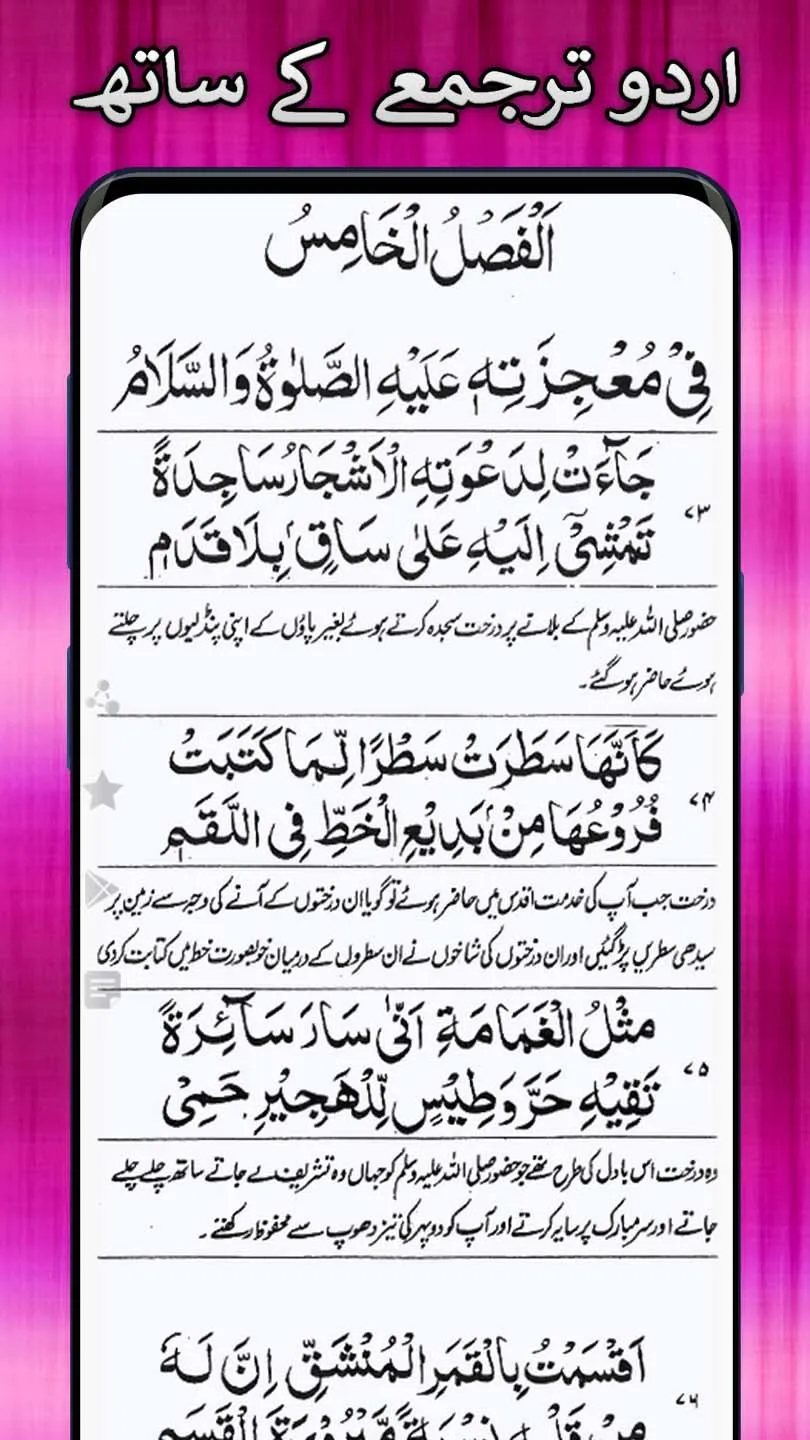 اردو ترجمعے کے ساتھ
اَلْفَصْلُ الْخَامِسُ
فِيْ مُعْجِزَتِهٖ عَلَيْهِ الصَّلٰوةُ وَالسَّلَامُ
جَآءَتْ لِدَعْوَتِهِ الْاَشْجَارُ سَاجِدَةً
۷۳
تَمْشِيْٓ اِلَيْهِ عَلٰى سَاقٍ بِلَا قَدَمٖ
حضور صلی اللہ علیہ وسلم کے بلانے پر درخت سجدہ کرتے ہوئے بغیر پاؤں کے اپنی پنڈلیوں پر چلتے
ہوئے حاضر ہو گئے۔
كَاَنَّهَا سَطَرَتْ سَطْرًا لِّمَا كَتَبَتْ
۷۴
فُرُوْعُهَا مِنْ بَدِيْعِ الْخَطِّ فِى اللَّقَمٖ
درخت جب آپ کی خدمت اقدس میں حاضر ہوئے تو گویا ان درختوں کے آنے کی وجہ سے زمین پر
سیدھی سطریں پڑ گئیں اور ان درختوں کی شاخوں نے ان سطروں کے درمیان خوبصورت خط میں کتابت کر دی
مِثْلُ الْغَمَامَةِ اَنّٰى سَارَ سَآئِرَةً
۷۵
تَقِيْهِ حَرَّ وَطِيْسٍ لِّلْهَجِيْرِ حَمِىْ
وہ درخت اس بادل کی طرح تھے جو حضور صلی اللہ علیہ وسلم کو جہاں وہ تشریف لے جاتے ساتھ چلے چلے
جاتے اور سر مبارک پر سایہ کرتے اور آپ کو دوپہر کی تیز دھوپ سے محفوظ رکھتے۔
اَقْسَمْتُ بِالْقَمَرِ الْمُنْشَقِّ اِنَّ لَهٗ
۷۶
مِنْ قَلْبِهٖ نِسْبَةً مَّبْرُوْرَةَ الْقَسَمٖ